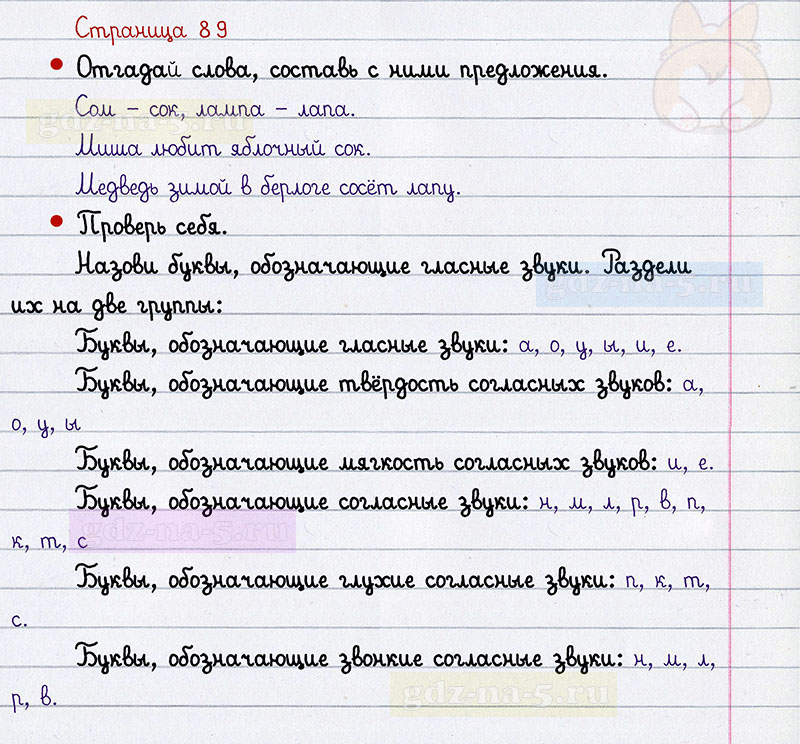 Страница 89
Отгадай слова, составь с ними предложения.
Сом – сок, лампа – лапа.
gdz-na-5.ru
Миша любит яблочный сок.
Медведь зимой в берлоге сосёт лапу.
Проверь себя.
Назови буквы, обозначающие гласные звуки. Раздели
gdz-na-5.ru
их на две группы:
Буквы, обозначающие гласные звуки: а, о, у, ы, и, е.
Буквы, обозначающие твёрдость согласных звуков: а,
о, у, ы
Буквы, обозначающие мягкость согласных звуков: и, е.
Буквы, обозначающие согласные звуки: н, м, л, р, в, п,
gdz-na-5.ru
к, т, с
Буквы, обозначающие глухие согласные звуки: п, к, т,
с.
Буквы, обозначающие звонкие согласные звуки: н, м, л,
gdz-na-5.ru
р, в.